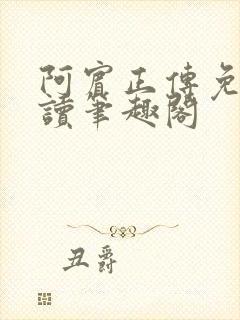 阿賓正傳免
讀筆趣閣
丑爵